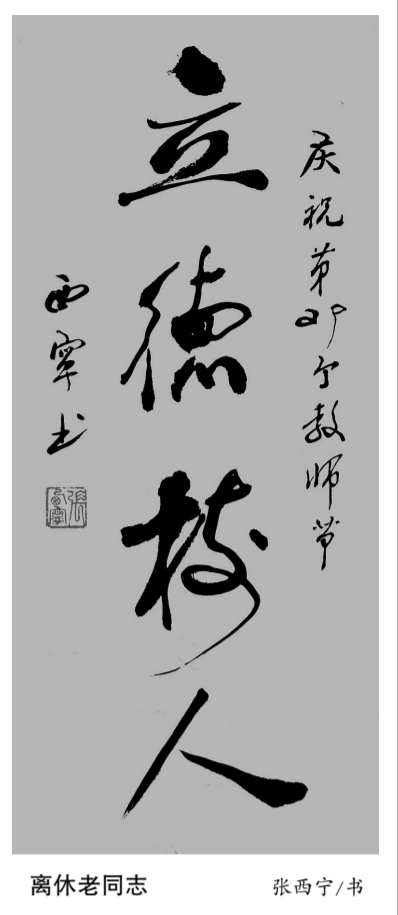 庆祝第29个教师节
立德树人
西宁书
张西宁
离休老同志
张西宁/书